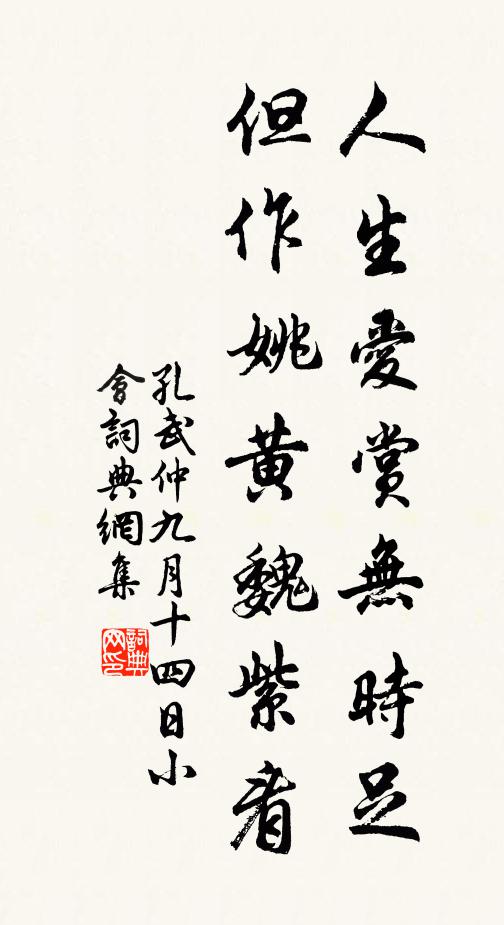 人生愛賞無時足
但作姚黄魏紫看
孔武仲九月十四日小
會詞典網集
詞典
网印